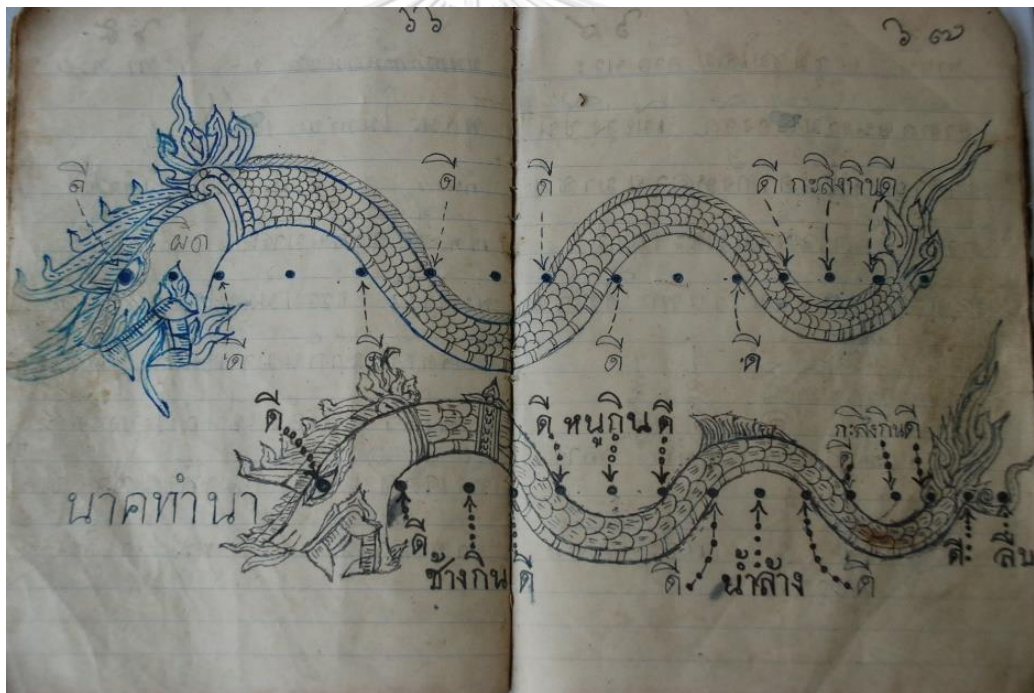 ๖๖
๖๗
ดี ดี ดี ดี กะสิงกิน ดี
ผิด
ดี ดี ดี ดี
ดี ดี หนูกิน ดี กะสิงกิน ดี
นาคทำนา
ดี ช้างกิน ดี ดี น้ำล้าง ดี ดี